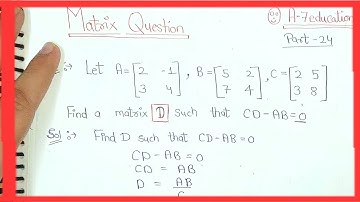 Matrix Question
A-7education
Part-24
Q:→ Let A=[2 -1 3 4], B=[5 2 7 4], C=[2 5 3 8]
Find a matrix D such that CD-AB=0
Sol:→ Find D such that CD-AB=0
CD-AB=0
CD = AB
D = AB